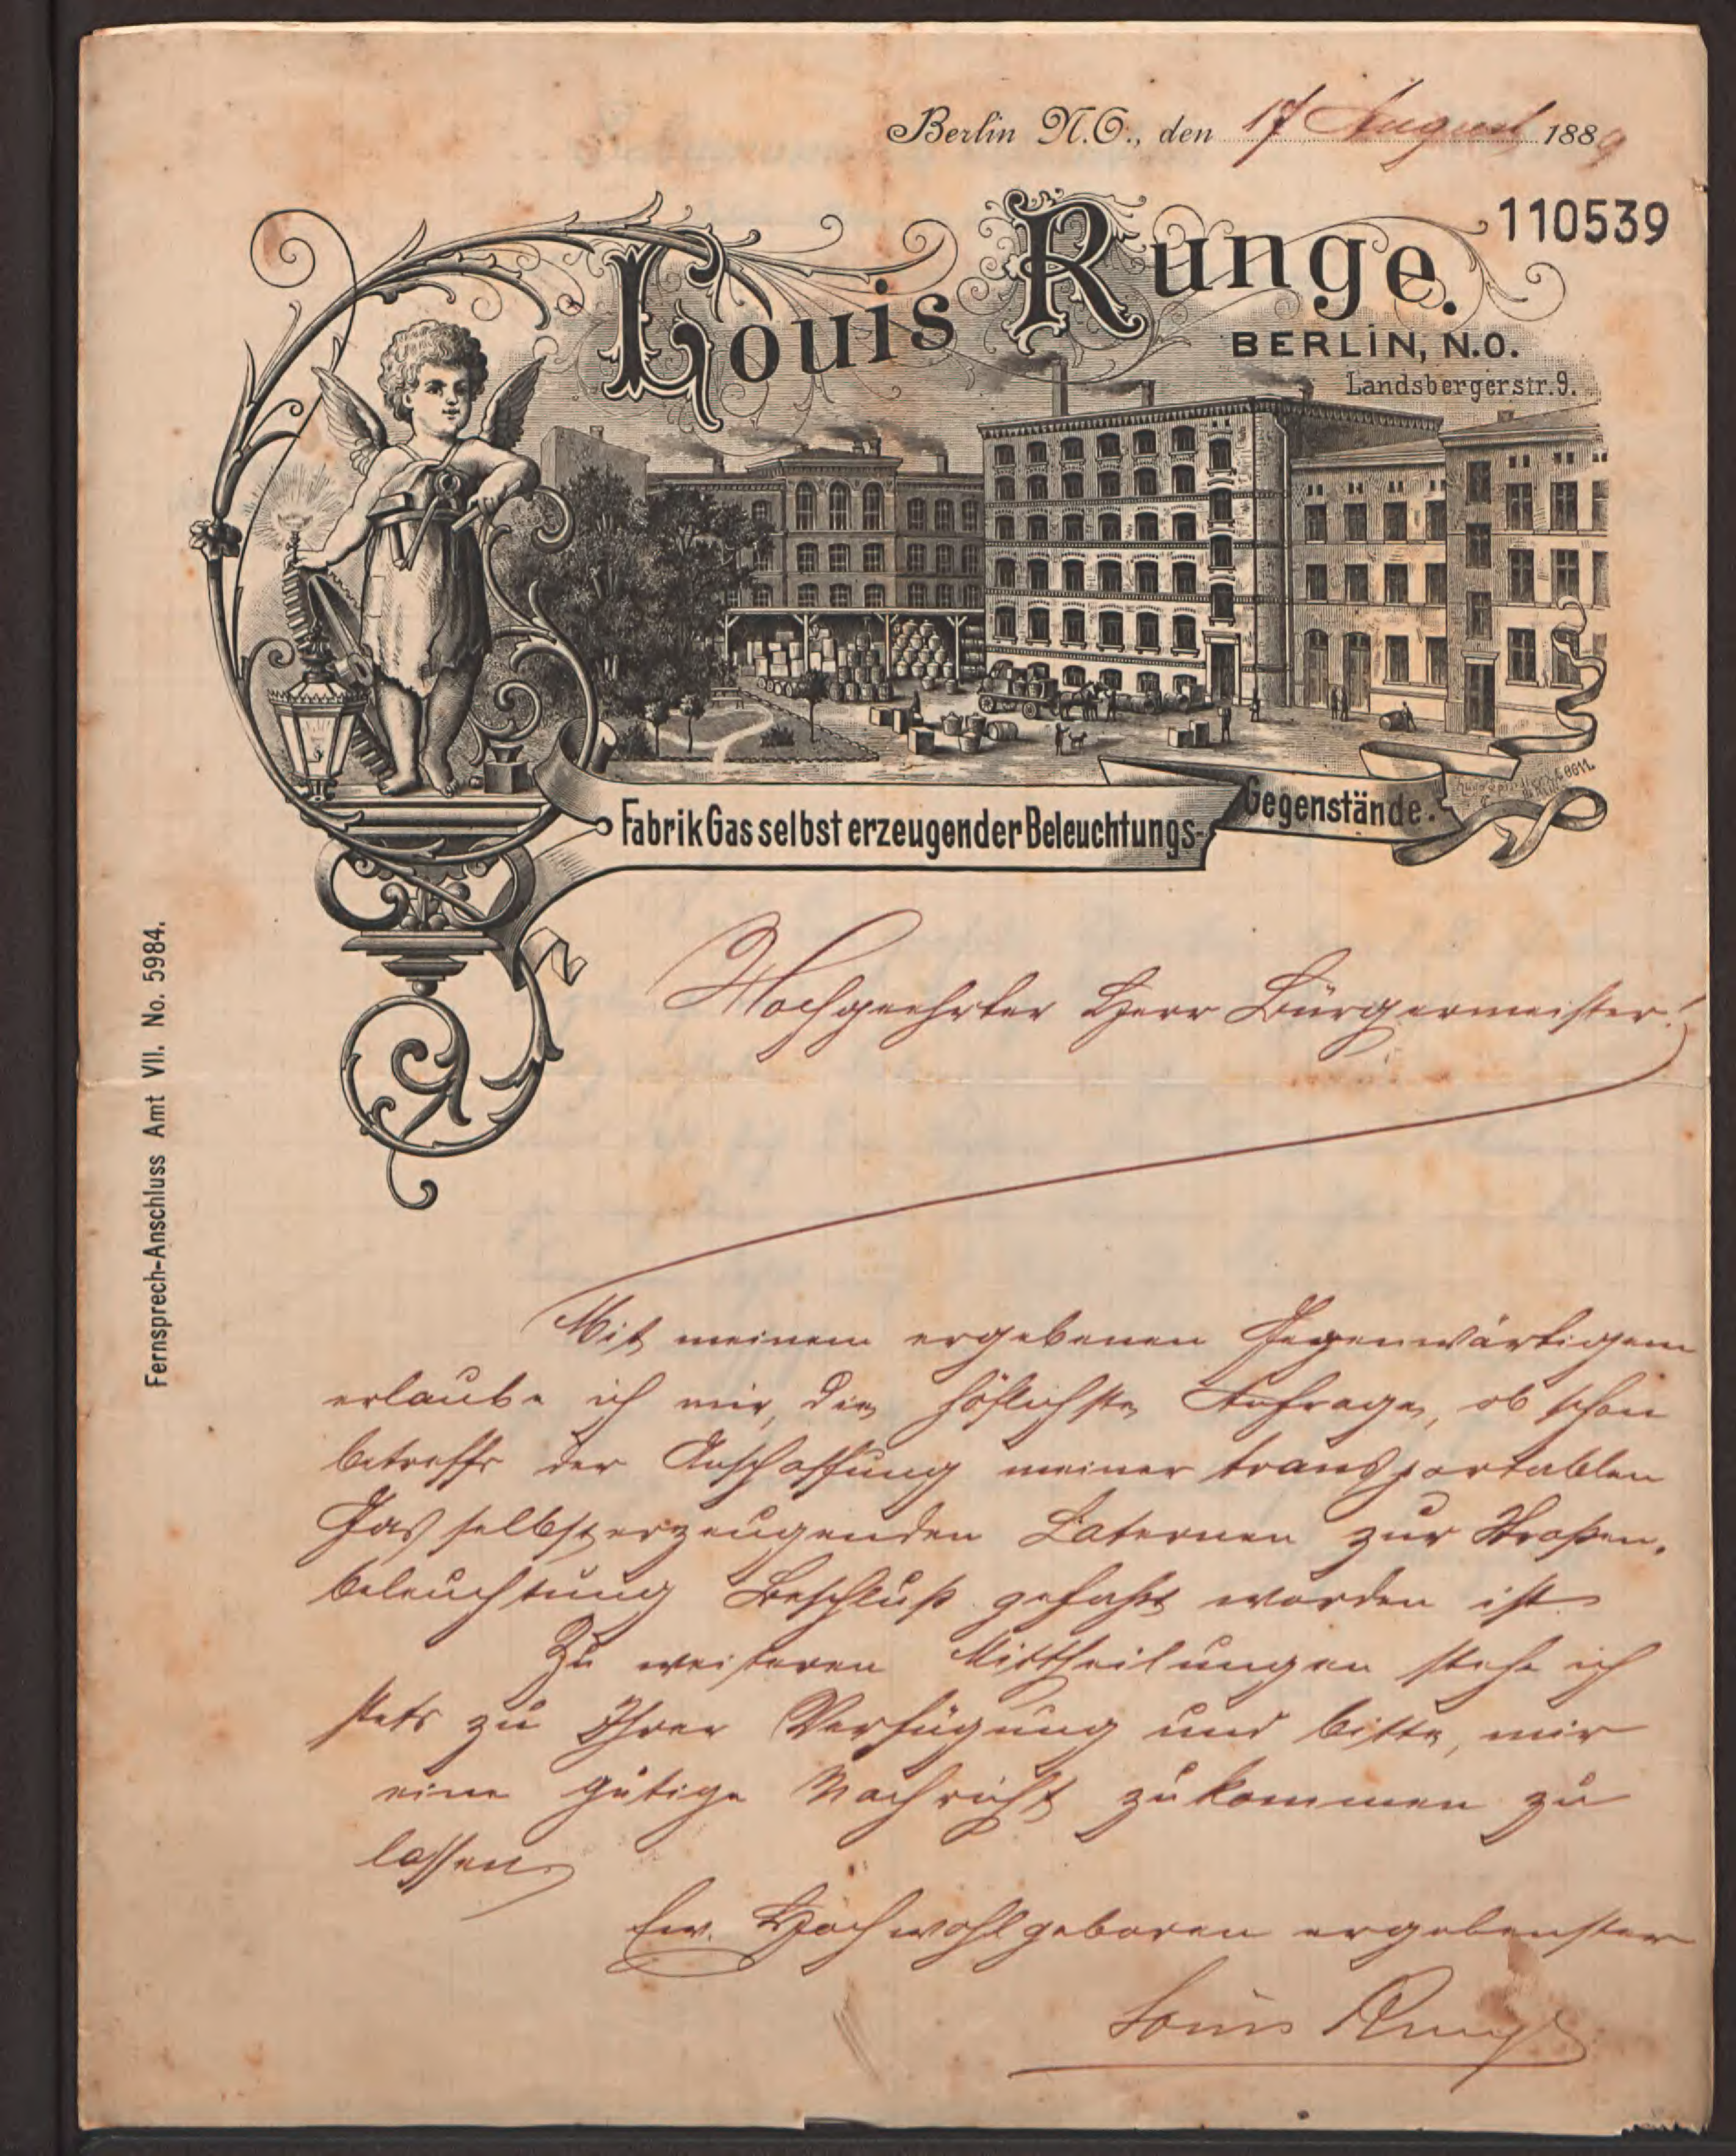 Berlin N.O., den 17 August 1889
110539
Louis Runge.
BERLIN, N.O.
Landsbergerstr. 9.
Fabrik Gas selbst erzeugender Beleuchtungs-
Gegenstände.
Fernsprech-Anschluss Amt VII. No. 5984.
Hochgeehrter Herr Bürgermeister!
Mit meinem ergebenen Gegenwärtigem
erlaube ich mir, die höflichste Anfrage, ob schon
betreffs der Anschaffung meiner transportablen
Gas selbsterzeugenden Laternen zur Straßen-
beleuchtung Beschluß gefaßt worden ist.
Zu weiteren Mittheilungen stehe ich
stets zu Ihrer Verfügung und bitte, mir
eine gütige Nachricht zukommen zu
lassen
Ew. Hochwohlgeboren ergebenster
Louis Runge